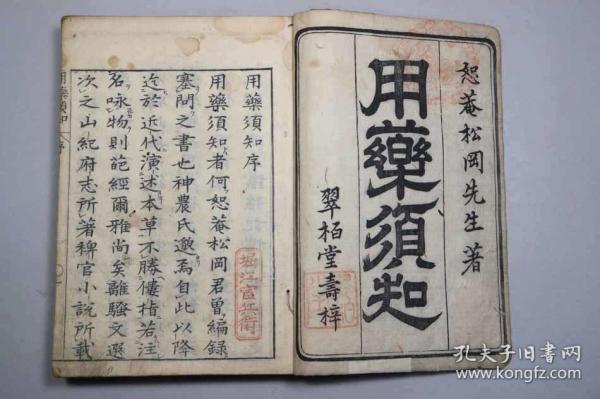 恕菴松岡先生著
用藥須知
翠栢堂壽梓
用藥須知序
用藥須知者何恕菴松岡君曾編録
塞問之書也神農氏邈焉自此以降
迄於近代演述本草不勝僂指若注
名咏物則葩經爾雅尚矣離騷文選
次之山紀府志所著稗官小說所載
用藥須知 序
堀江富兵衛
孔夫子旧书网
www.kongfz.com